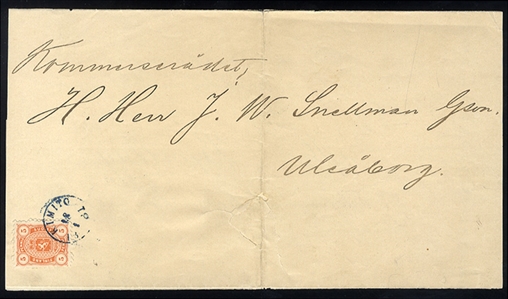 Kommerserådet,
H. Herr J. W. Snellman Gson.
Uleåborg.
KIMITO
5 5
5 5